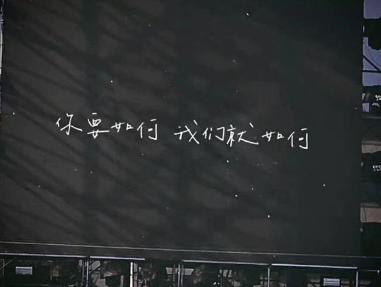 你要如何 我们就如何